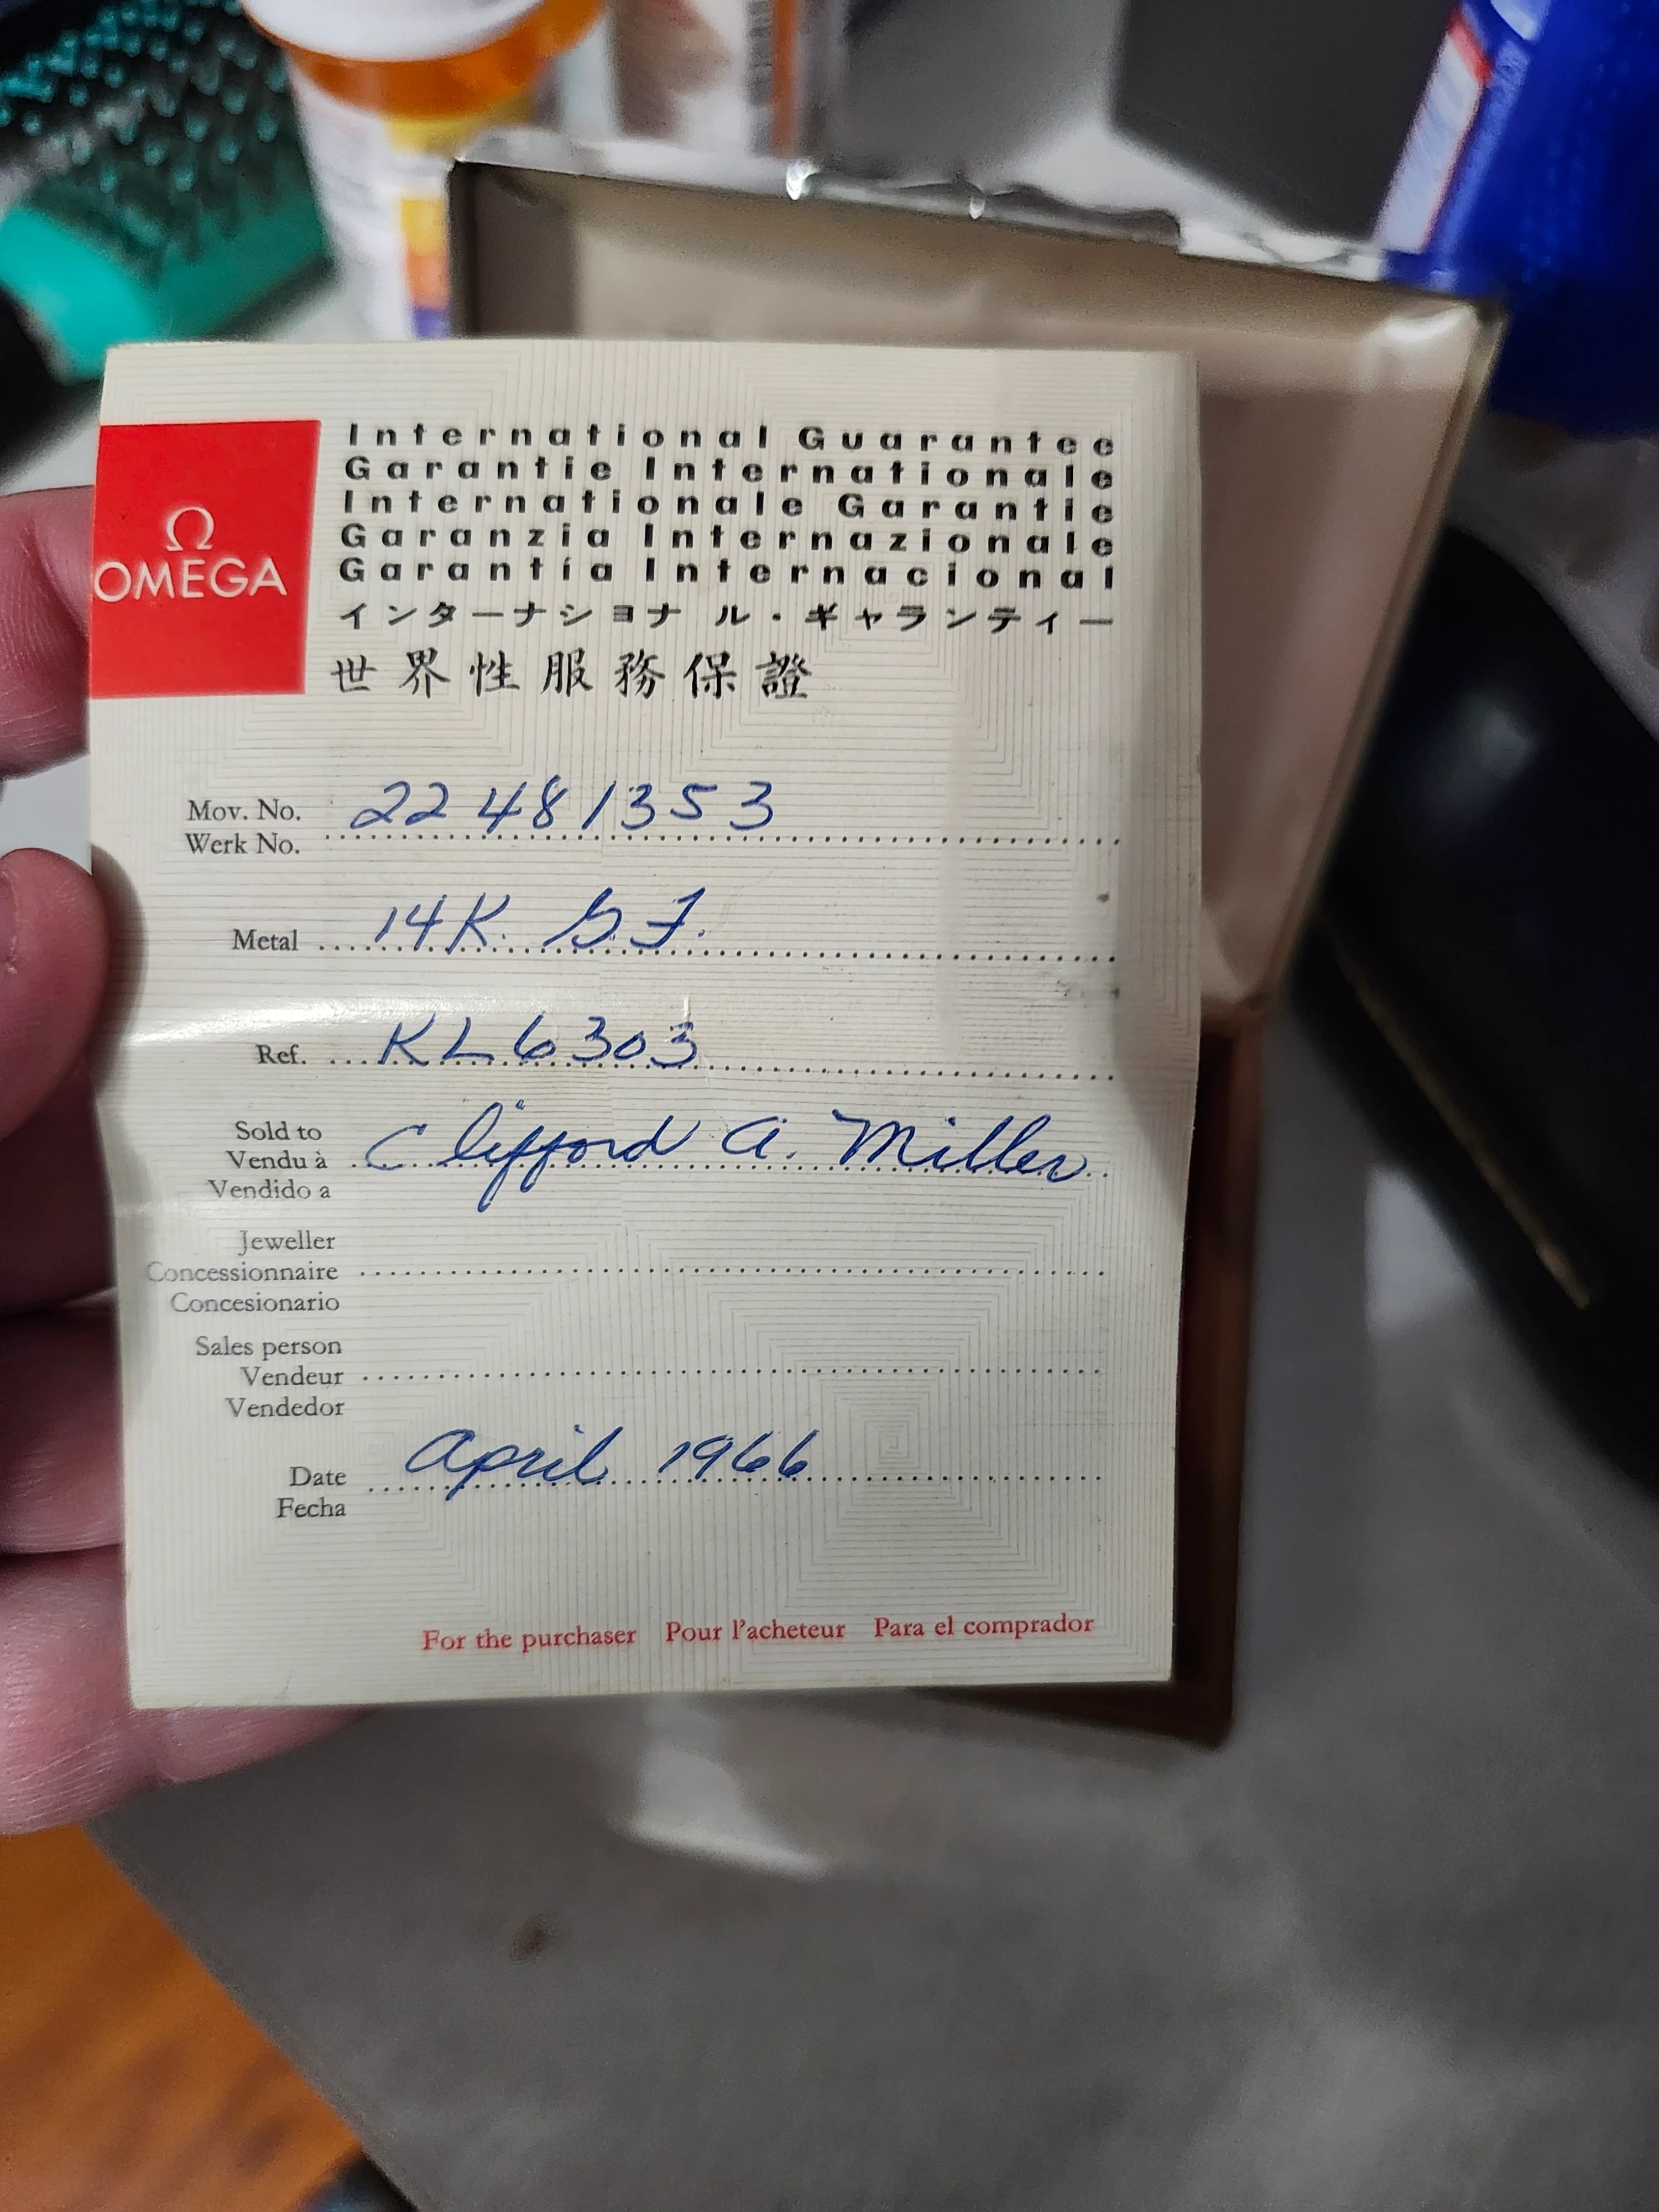 Ω
OMEGA
International Guarantee
Garantie Internationale
Internationale Garantie
Garanzia Internazionale
Garantía Internacional
インターナショナル・ギャランティー
世界性服務保證
Mov. No. 22481353
Werk No.
Metal 14K. G.F.
Ref. KL6303
Sold to
Vendu à Clifford A. Miller
Vendido a
Jeweller
Concessionnaire
Concesionario
Sales person
Vendeur
Vendedor
Date April 1966
Fecha
For the purchaser Pour l'acheteur Para el comprador